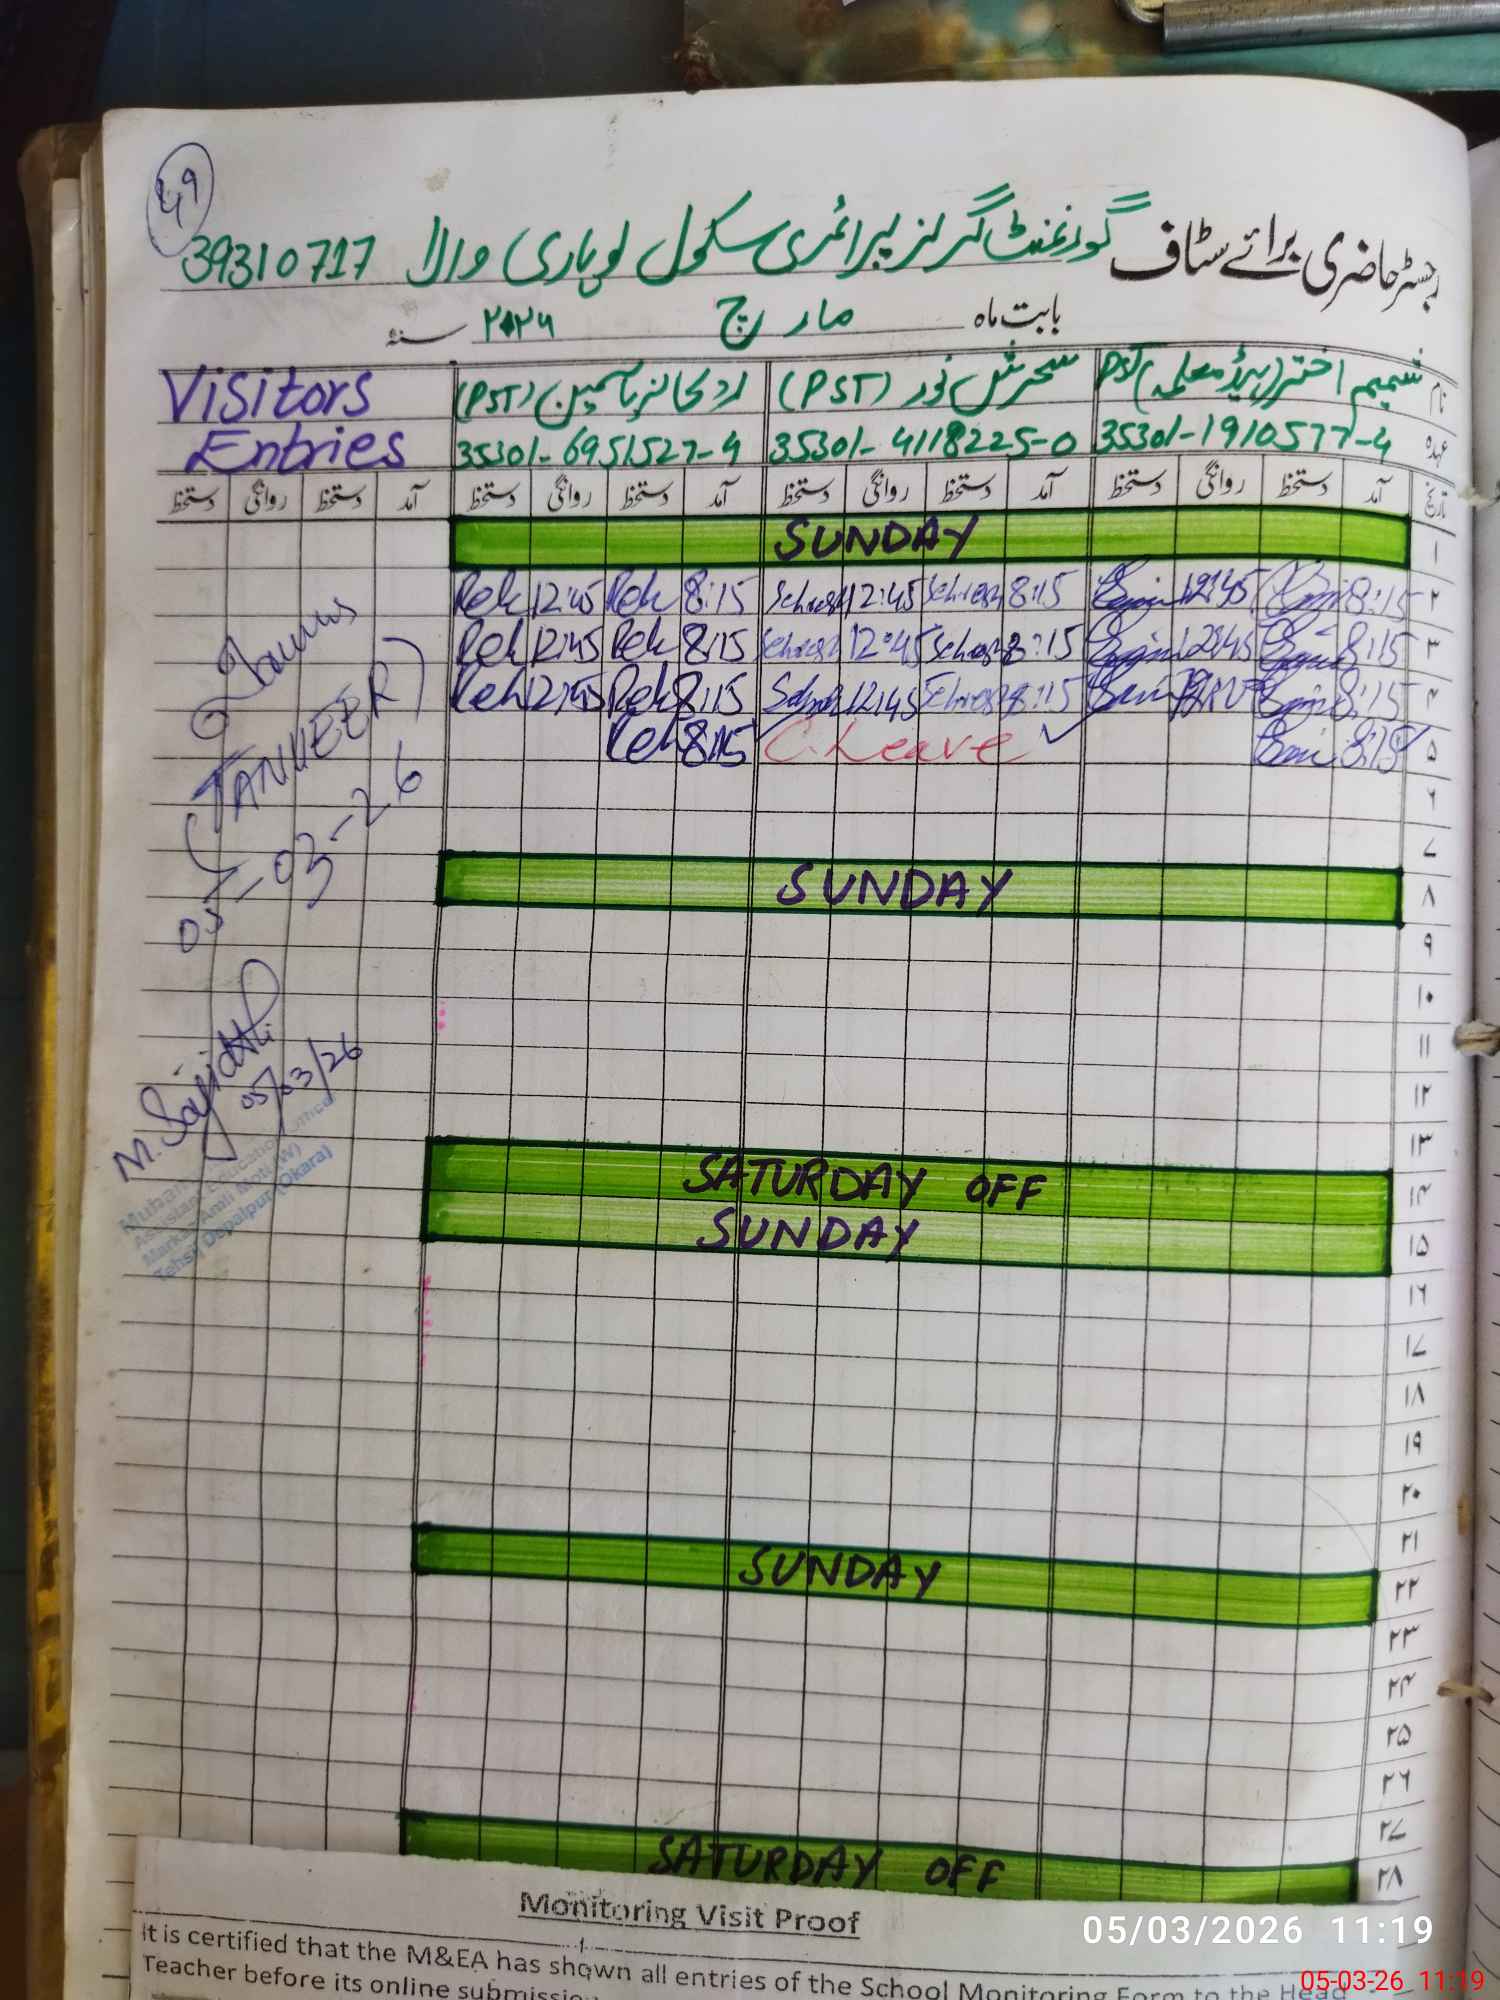 49
رجسٹر حاضری برائے سٹاف گورنمنٹ گرلز پرائمری سکول لوہاری والا 39310717
بابت ماہ مارچ ۲۰۲۶ سنہ
نام شمیم اختر (ہیڈ معلمہ) PST سحرش نور (PST) (PST) Visitors
عہدہ 35301-1910577-4 35301-4118225-0 35301-6951527-4 Entries
تاریخ آمد دستخط روانگی دستخط آمد دستخط روانگی دستخط آمد دستخط روانگی دستخط آمد دستخط روانگی دستخط
۱ SUNDAY
۲ 8:15 12:45 8:15 Sehresh 12:45 Sehresh 8:15 Reh 12:45 Reh
۳ 8:15 12:45 8:15 Sehresh 12:45 Sehresh 8:15 Reh 12:45 Reh
۴ 8:15 8:15 Sehresh 12:45 Sehresh 8:15 Reh 12:45 Reh
۵ 8:15 C. Leave 8:15 Reh
۶
۷
۸ SUNDAY
۹
۱۰
۱۱
۱۲
۱۳
۱۴ SATURDAY OFF
۱۵ SUNDAY
۱۶
۱۷
۱۸
۱۹
۲۰
۲۱
۲۲ SUNDAY
۲۳
۲۴
۲۵
۲۶
۲۷
۲۸ SATURDAY OFF
(TANVEER)
05-03-26
M. Sajid Ali
05/03/26
Assistant Education Officer
Markaz Amli Moti (W)
Tehsil Depalpur (Okara)
Monitoring Visit Proof
It is certified that the M&EA has shown all entries of the School Monitoring Form to the Head
Teacher before its online submission
05/03/2026 11:19
05-03-26 11:19